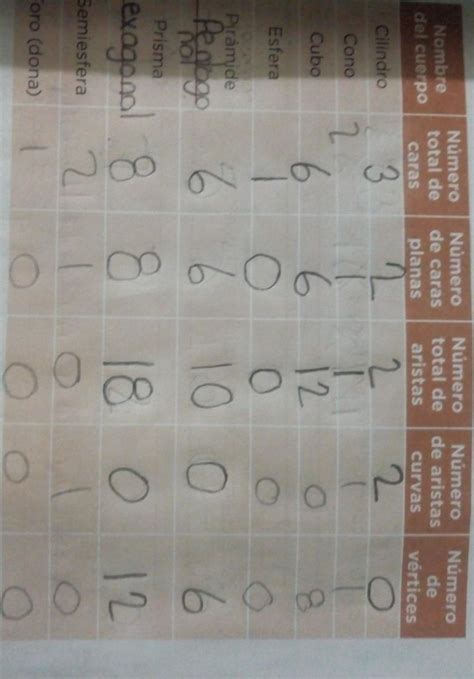 Nombre del cuerpo Número total de caras Número de caras planas Número total de aristas Número de aristas curvas Número de vértices
Cilindro 3 2 2 2 0
Cono 2 1 1 1 1
Cubo 6 6 12 0 8
Esfera 1 0 0 0 0
Pirámide 6 6 10 0 6
Prisma exagonal 8 8 18 0 12
Semiesfera 2 1 0 1 0
Toro (dona) 1 0 0 0 0